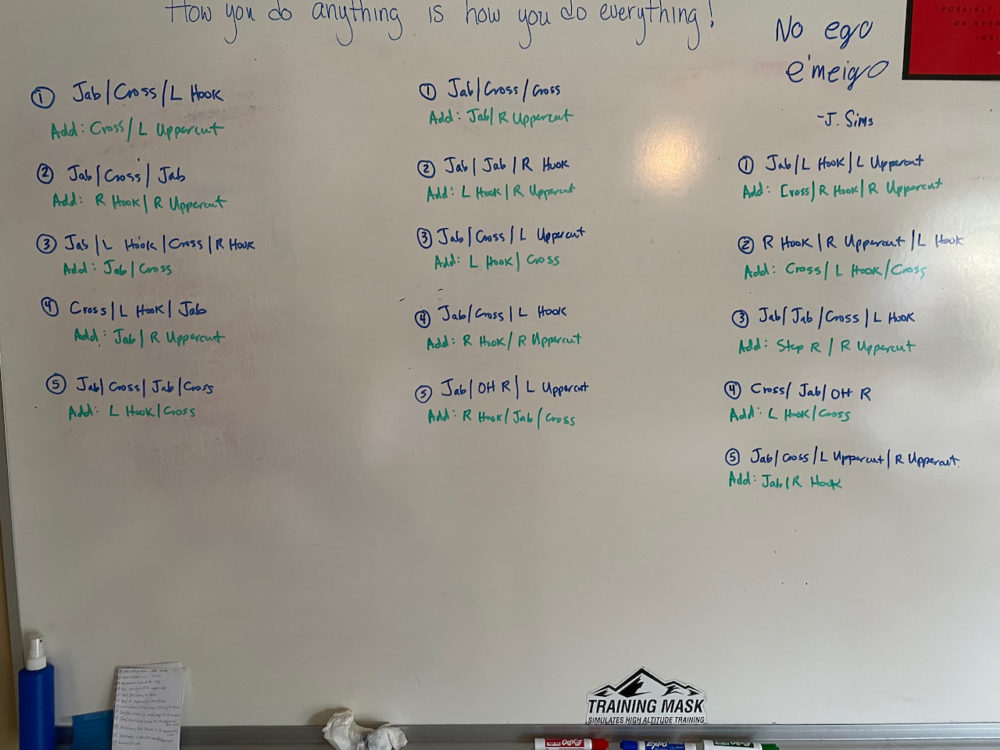 How you do anything is how you do everything!
No ego
e'meigo
-J. Sims
① Jab/Cross/L Hook
Add: Cross/L Uppercut
② Jab/Cross/Jab
Add: R Hook/R Uppercut
③ Jab/L Hook/Cross/R Hook
Add: Jab/Cross
④ Cross/L Hook/Jab
Add: Jab/R Uppercut
⑤ Jab/Cross/Jab/Cross
Add: L Hook/Cross
① Jab/Cross/Cross
Add: Jab/R Uppercut
② Jab/Jab/R Hook
Add: L Hook/R Uppercut
③ Jab/Cross/L Uppercut
Add: L Hook/Cross
④ Jab/Cross/L Hook
Add: R Hook/R Uppercut
⑤ Jab/OH R/L Uppercut
Add: R Hook/Jab/Cross
① Jab/L Hook/L Uppercut
Add: Cross/R Hook/R Uppercut
② R Hook/R Uppercut/L Hook
Add: Cross/L Hook/Cross
③ Jab/Jab/Cross/L Hook
Add: Step R/R Uppercut
④ Cross/Jab/OH R
Add: L Hook/Cross
⑤ Jab/Cross/L Uppercut/R Uppercut
Add: Jab/R Hook
TRAINING MASK
SIMULATES HIGH ALTITUDE TRAINING
EXPO
EXPO